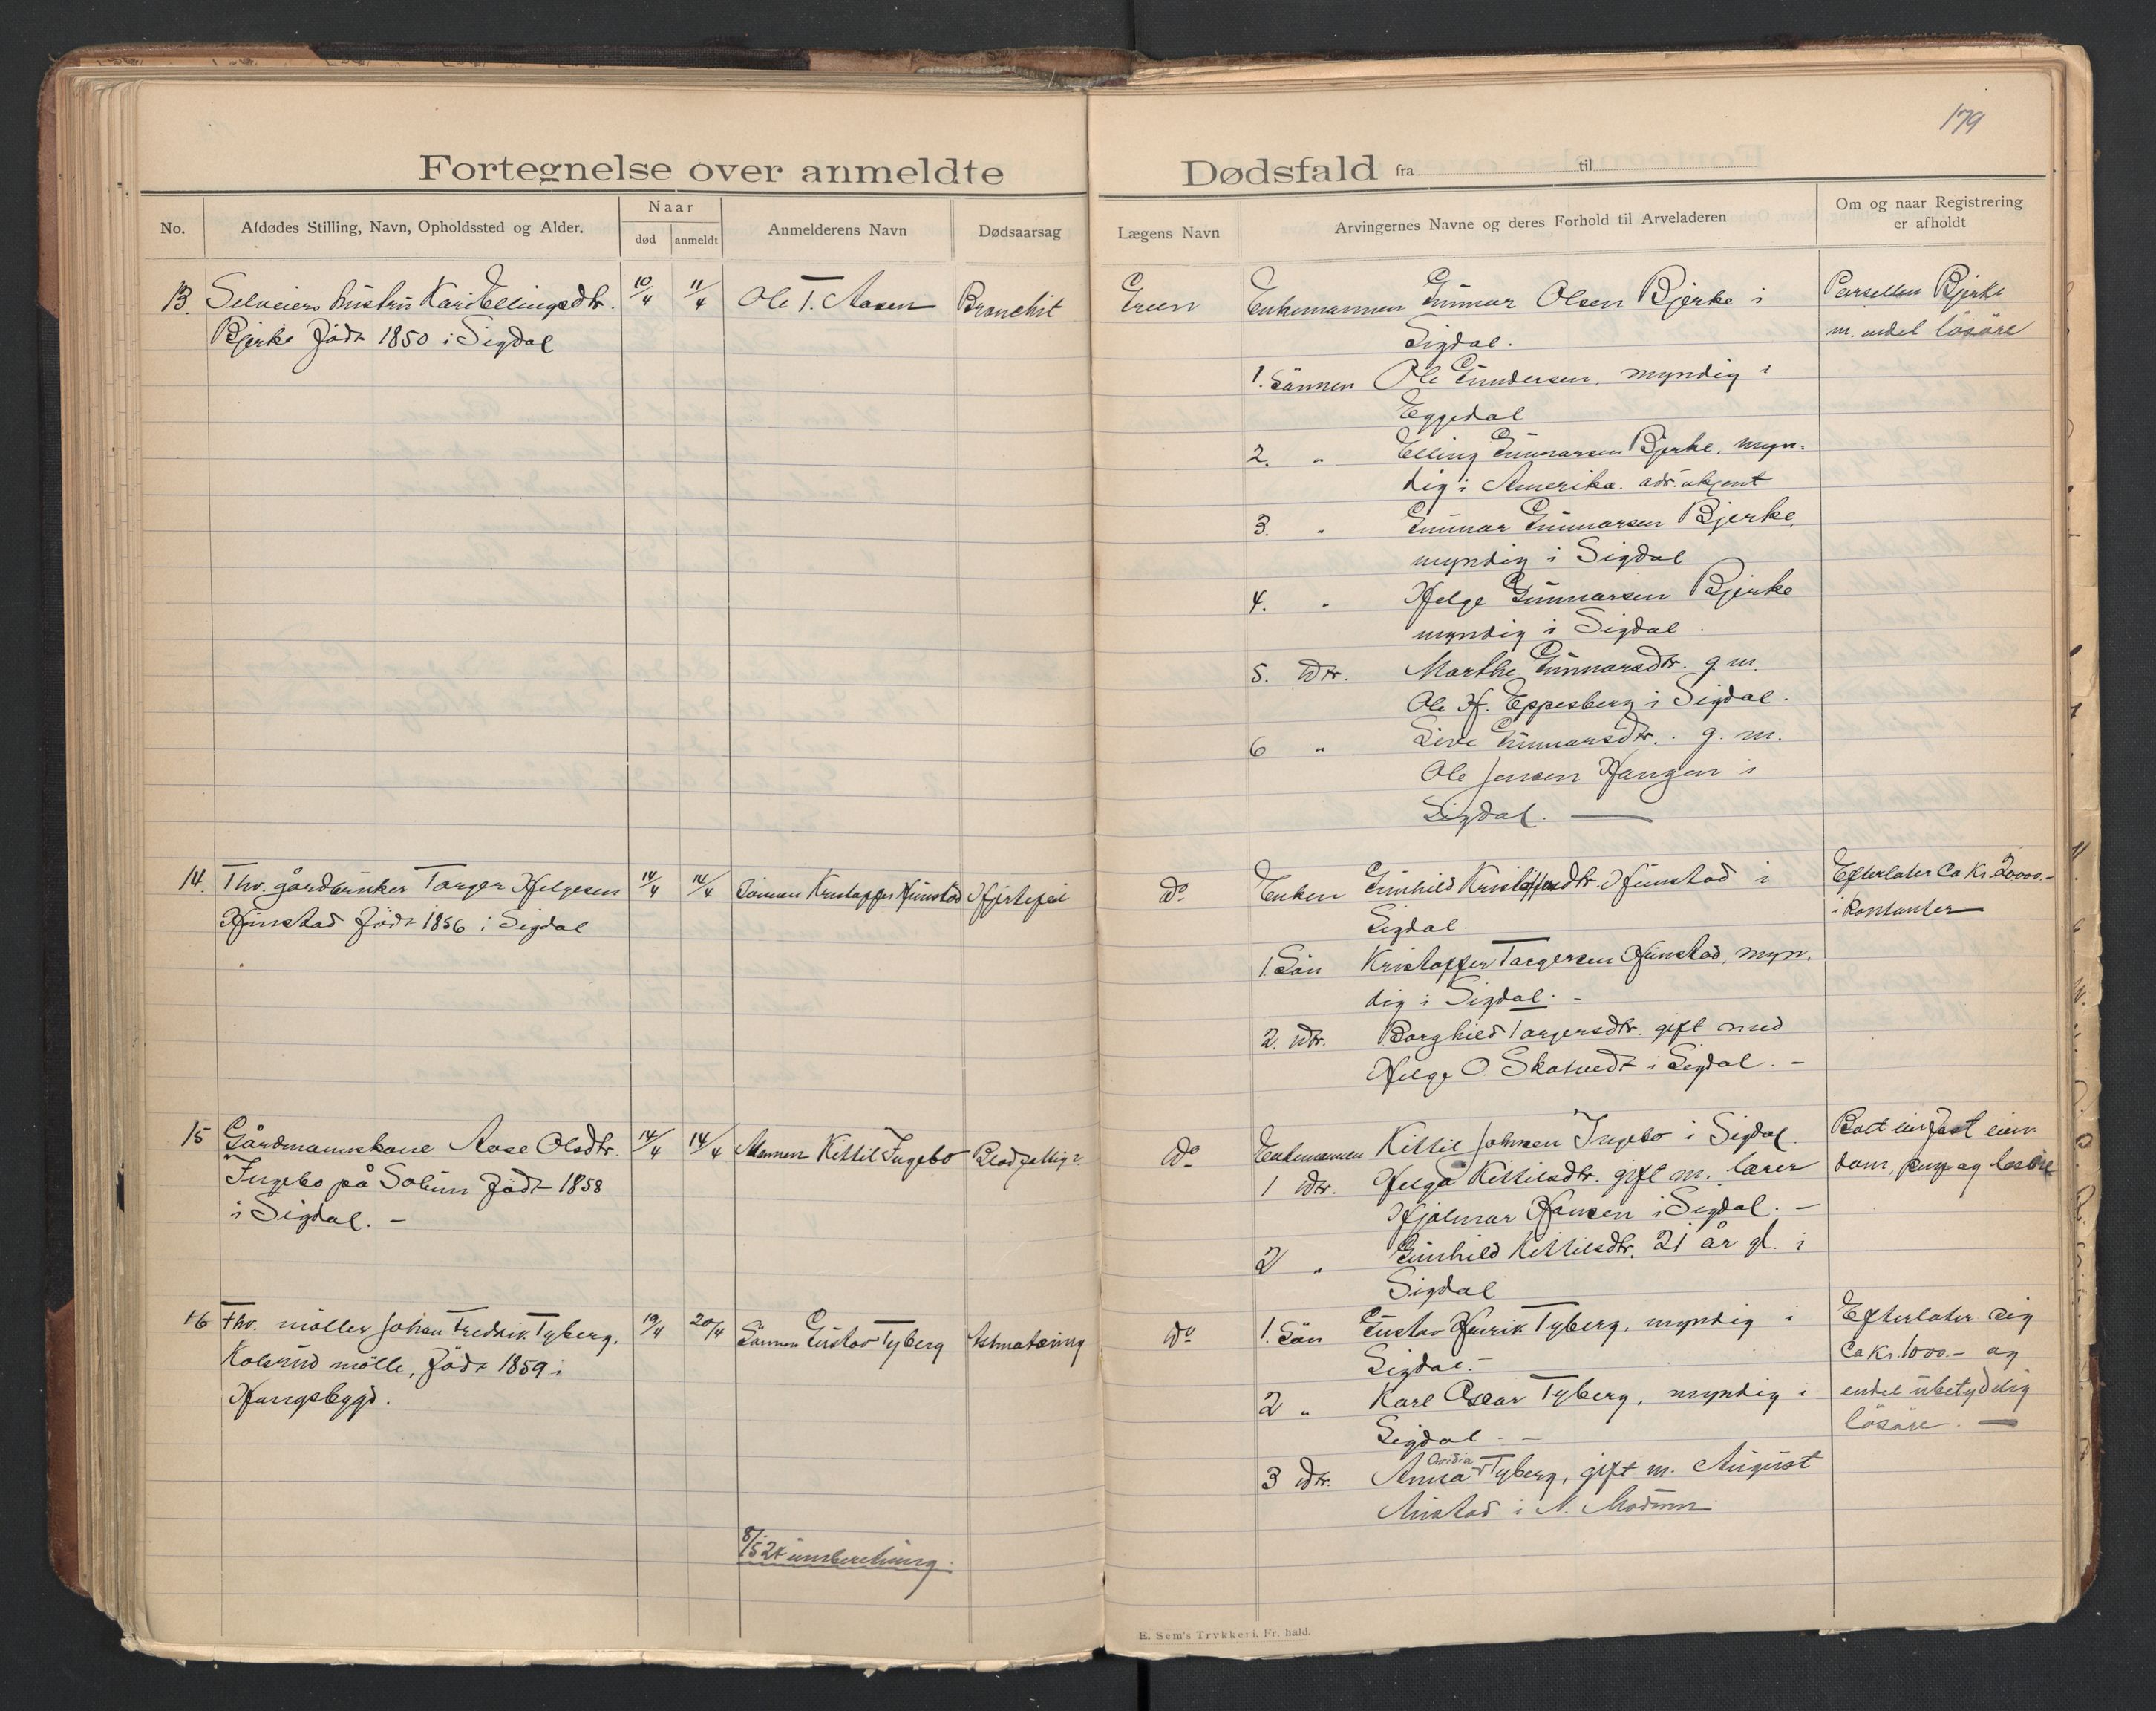 179
Fortegnelse over anmeldte Dødsfald fra til
No.
Afdødes Stilling, Navn, Opholdssted og Alder.
Naar
død
anmeldt
Anmelderens Navn
Dødsaarsag
Lægens Navn
Arvingernes Navne og deres Forhold til Arveladeren
Om og naar Registrering
er afholdt
13. Selveiers hustru Kari Ellingsdtr. 10/4 11/4 Ole T. Aasen Bronchit
Bjerke född 1850 i Sigdal
Green Enkemannen Gunnar Olsen Bjerke i
Sigdal.
1. Sönnen Ole Gundersen, myndig i
Eggedal
2. " Elling Gunnarsen Bjerke, myn-
dig i Amerika. adr. ukjent
3. " Gunnar Gunnarsen Bjerke,
myndig i Sigdal
4. " Helge Gunnarsen Bjerke
myndig i Sigdal.
5. dtr. Marthe Gunnarsdtr. g. m.
Ole H. Eppesberg i Sigdal.
6 " Live Gunnarsdtr. g. m.
Ole Jensen Haugen i
Sigdal. —
Parsellen Bjerke
m. endel lösöre
14. Fhv. gårdbruker Torger Helgesen 14/4 14/4 Sönnen Kristoffer Hunstad Hjertefeil
Hunstad född 1856 i Sigdal
do Enken Gunhild Kristoffersdtr. Hunstad i
Sigdal.
1 Sön Kristoffer Torgersen Hunstad, myn-
dig i Sigdal. -
2. dtr. Borghild Torgersdtr. gift med
Helge O. Skatvedt i Sigdal. -
Efterlater Ca Kr. 20000.-
i kontanter
15 Gårdmannskone Aase Olsdtr. 14/4 14/4 Mannen Kittil Ingebo
Ingebo på Solum född 1858
i Sigdal. -
do Enkemannen Kittil Johnsen Ingebo i Sigdal.
1 dtr. Helga Kittilsdtr. gift m. lærer
Hjalmar Hansen i Sigdal. -
2 " Gunhild Kittilsdtr. 21 år gl. i
Sigdal
fast eien-
dom, og lösöre
16 Fhv. möller Johan Fredrik Tyberg. 19/4 20/4 Sönnen Gustav Tyberg
Kolsrud mölle, född 1859 i
Haugsbygd.
do 1. Sön Gustav Henrik Tyberg, myndig i
Sigdal. -
2 " Karl Oscar Tyberg, myndig i
Sigdal. -
Ovidia
3 dtr. Anna Tyberg, gift m. August
i N. Modum
Efterlater sig
Ca Kr. 1000.- og
endel ubetydelig
lösöre. —
8/5 24 innberetning.
E. Sem's Trykkeri, Fr. hald.